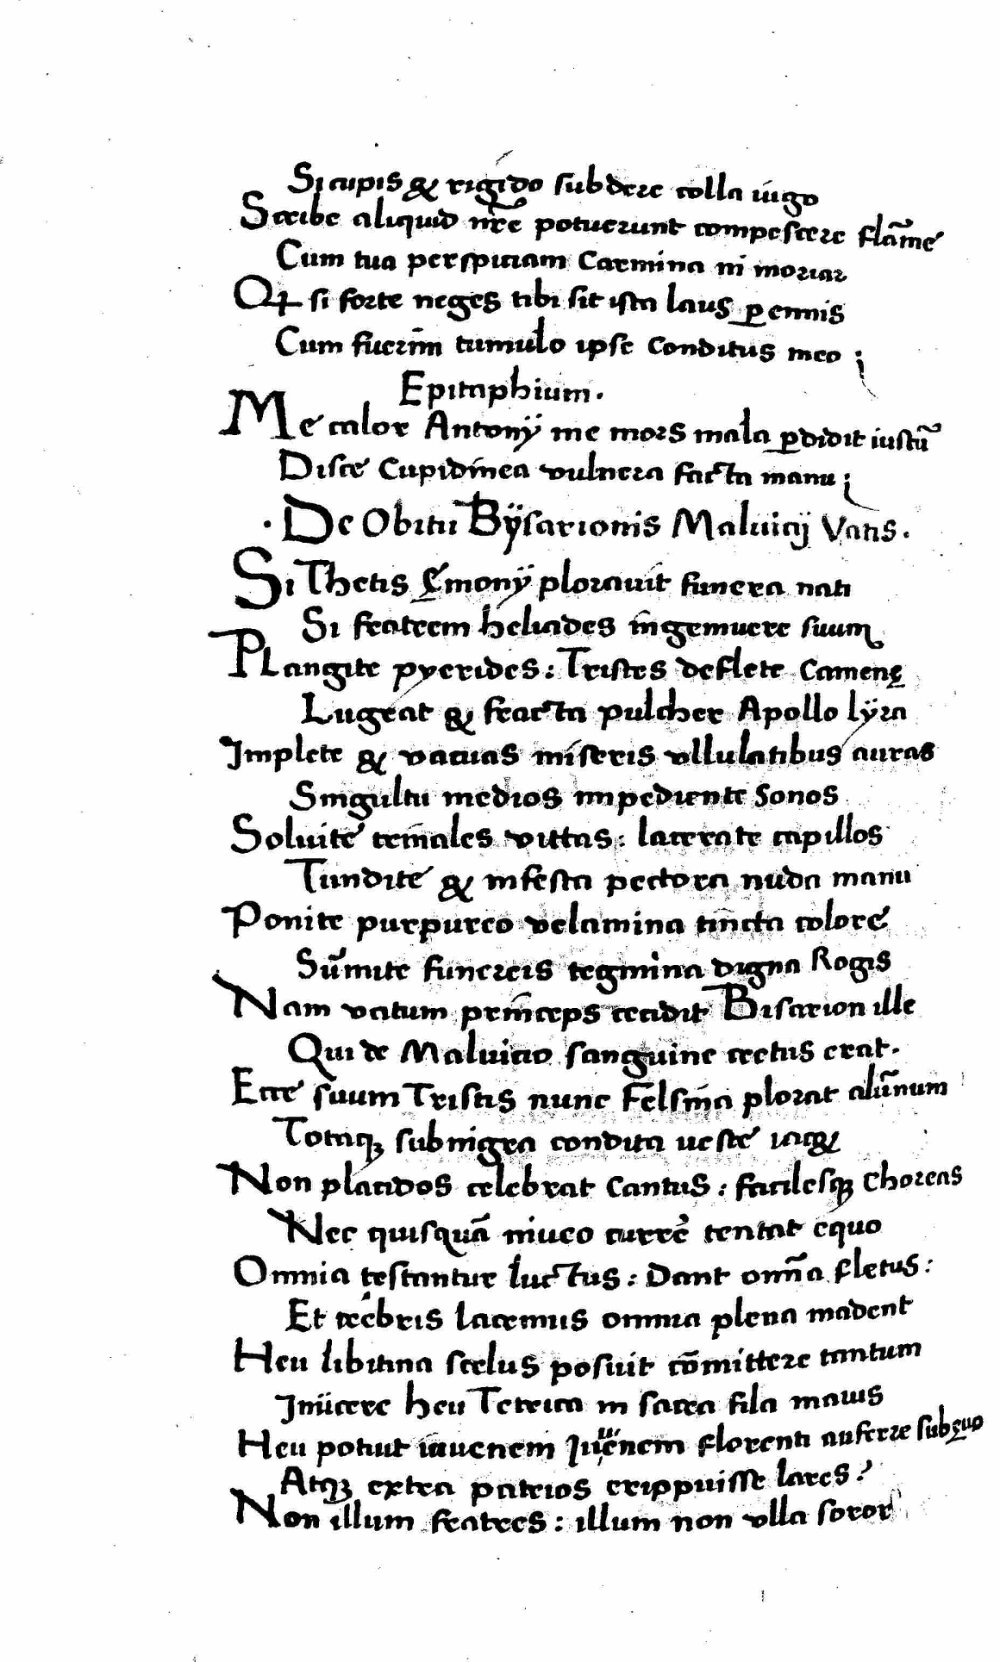 Si cupis & rigido subdere colla iugo
Scribe aliquid nr̃e potuerunt compescere flãme
Cum tua perspiciam Carmina ni moriar
Qđ si forte neges tibi sit ista laus ꝑennis
Cum fuerim̃ tumulo ipse conditus meo ;
Epitaphium.
Me calor Antonij me mors mala ꝑdidit iustũ
Disce Cupidinea vulnera facta manu ;
· De Obitu Bÿsarionis Maluicij Vatis .
Si Thetis Ęmonij plorauit funera nati
Si fratrem heliades ingemuere suum
Plangite pyerides : Tristes deflete Camenę
Lugeat & fracta pulcher Apollo lÿra
Implete & vacuas miseris vllulatibus auras
Singultu medios impediente sonos
Soluite crinales vittas : lacerate capillos
Tundite & infesta pectora nuda manu
Ponite purpureo velamina tincta colore
Sũmite funereis tegmina digna Rogis
Nam vatum princeps cecidit Bisarion ille
Qui de Maluicio sanguine cretus erat .
Ecce suum Tristis nunc Felsina plorat alũnum
Totaqꝫ sub nigra condita ueste iacet
Non placidos celebrat Cantus : facilesqꝫ Choreas
Nec quisquã niueo currẽ tentat equo
Omnia testantur luctus : Dant omña fletus :
Et crebris lacrimis omnia plena madent
Heu libitina scelus posuit cõmittere tantum
Inijcere heu Tetrica in sacra fila manus
Heu potuit iuuenem florenti auferre sub ęuo
Atqꝫ extra patrios erippuisse lares ?
Non illum fratres : illum non vlla soror